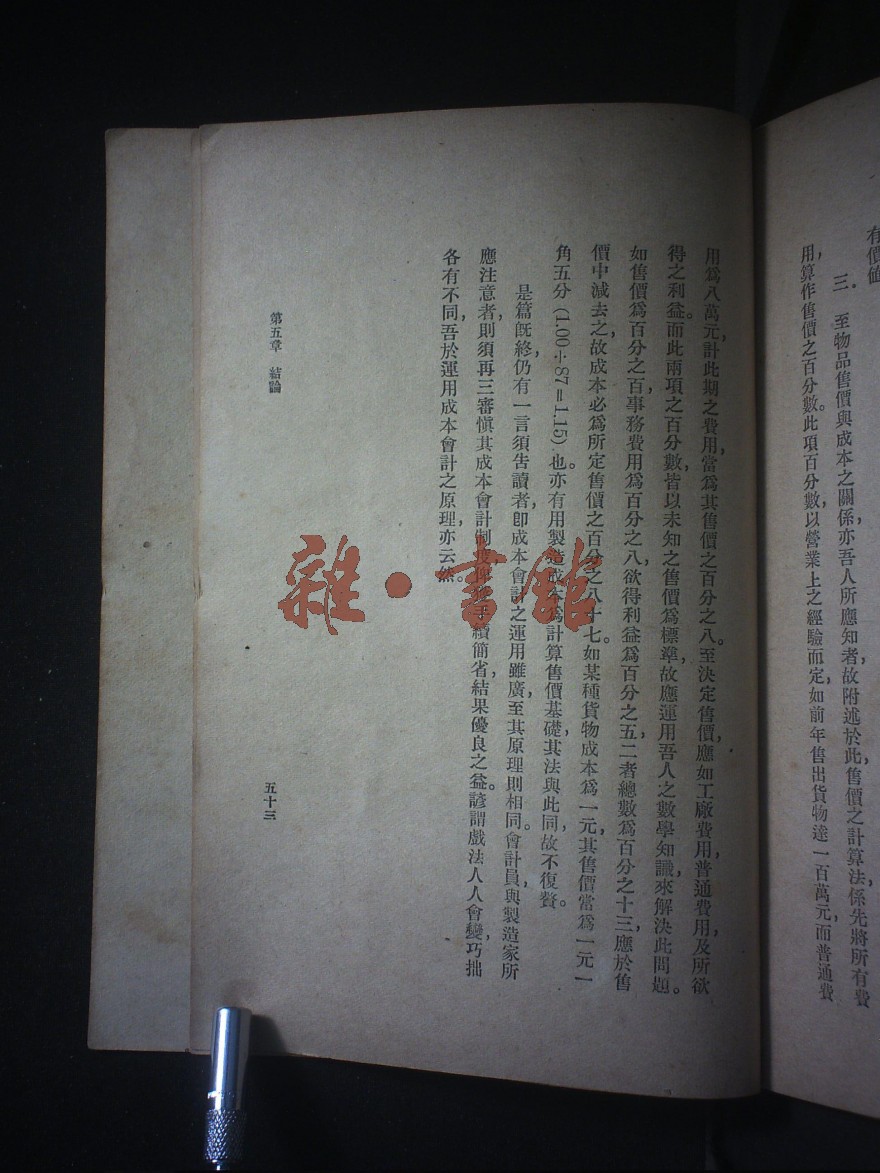 有價值
三.　至物品售價與成本之關係,亦吾人所應知者,故附述於此,售價之計算法,係先將所有費
用,算作售價之百分數。此項百分數,以營業上之經驗而定,如前年售出貨物達一百萬元,而普通費
用爲八萬元,計此期之費用,當爲其售價之百分之八。至決定售價,應如工廠費用,普通費用,及所欲
得之利益。而此兩項之百分數,皆以未知之售價爲標準,故應運用吾人之數學知識,來解決此問題。
如售價爲百分之百,事務費用爲百分之八,欲得利益爲百分之五,二者總數爲百分之十三,應於售
價中減去之,故成本必爲所定售價之百分之八十七。如某種貨物成本爲一元,其售價當爲一元一
角五分(1.00÷87=1.15)也。亦有用製造成本爲計算售價基礎,其法與此同,故不復贅。
是篇旣終,仍有一言須告讀者,卽成本會計之運用雖廣,至其原理則相同。會計員與製造家所
應注意者,則須再三審愼其成本會計制度,俾收手續簡省,結果優良之益。諺謂戲法人人會變,巧拙
各有不同,吾於運用成本會計之原理,亦云然。
第五章　結論
五十三
雜·書館